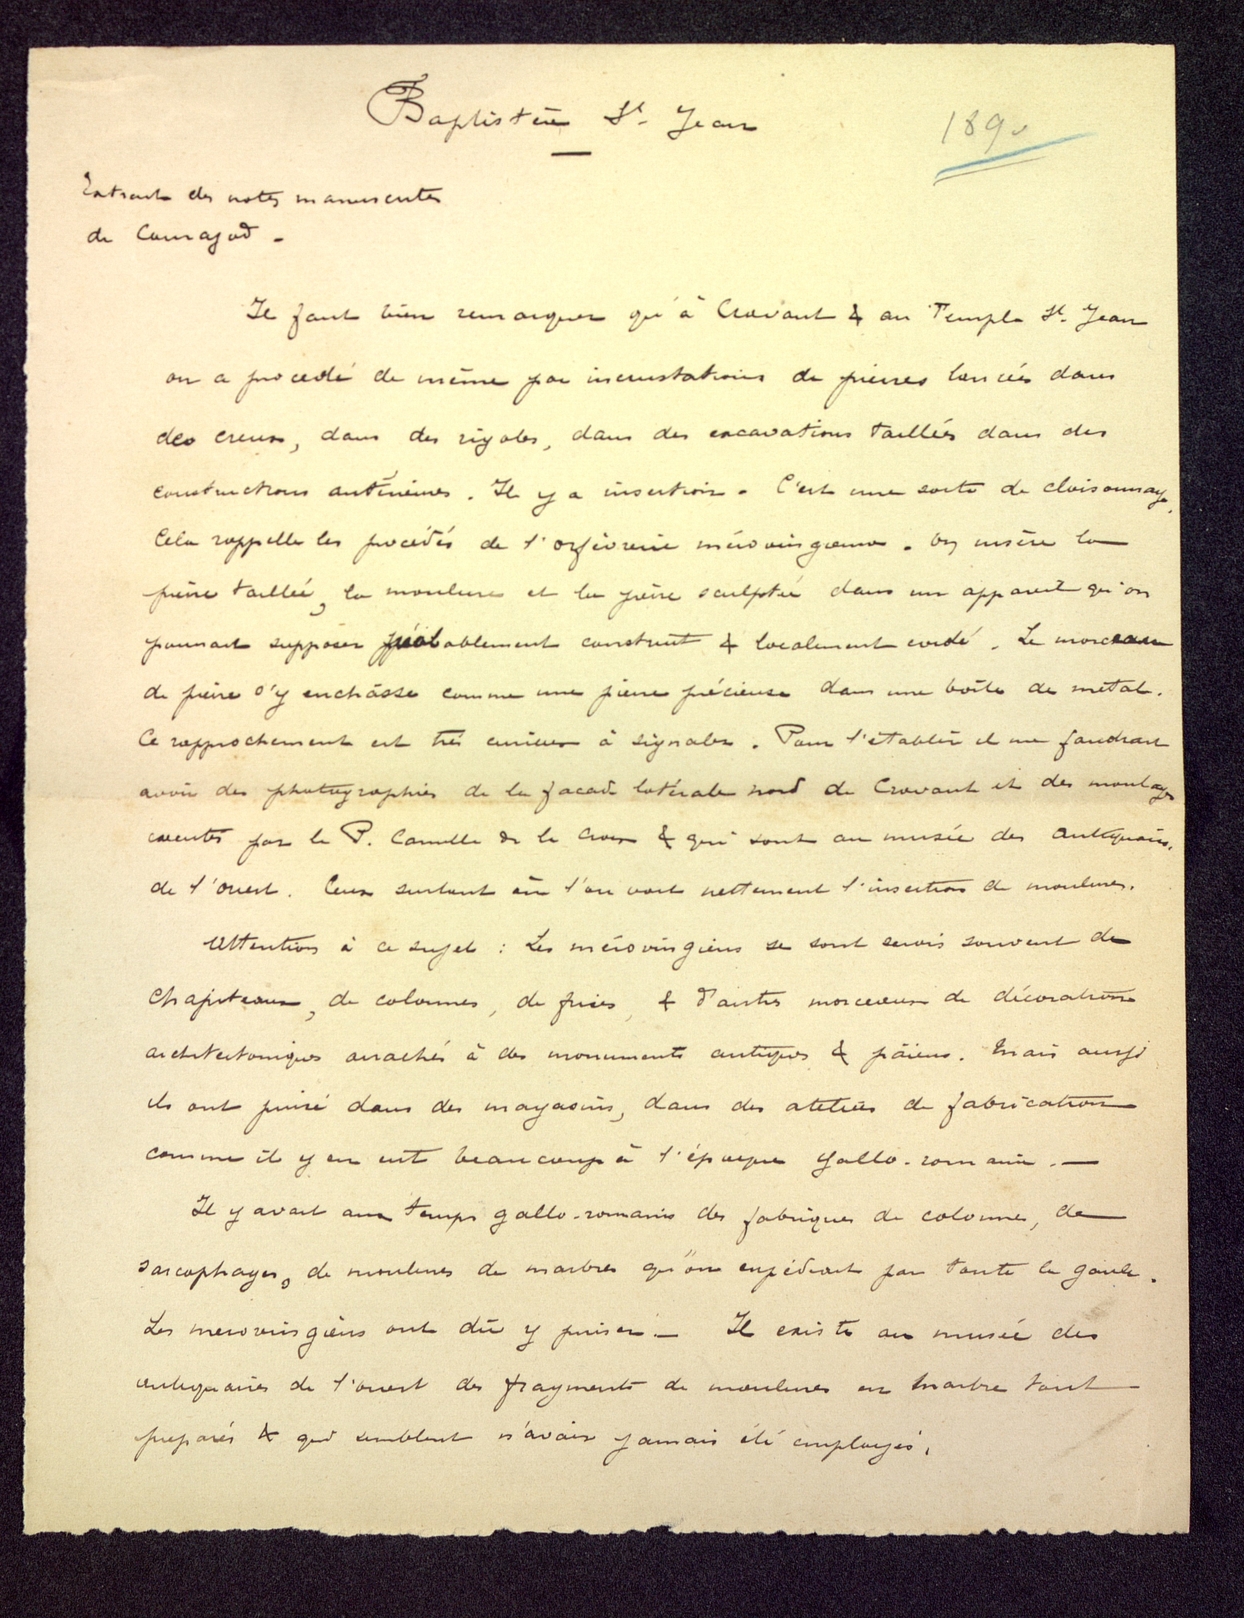 Baptistère St. Jean
1890
Extrait des notes manuscrites
de Courajod -
Il faut bien remarquer qu'à Cravant & au Temple St. Jean
on a procédé de même par incrustations de pierres lancées dans
des creux, dans des rigoles, dans des excavations taillées dans des
constructions antérieures. Il y a insertion. C'est une sorte de cloisonnage,
Cela rappelle les procédés de l'orfèvrerie mérovingienne. On insère la
pierre taillée, la moulure et la pierre sculptée dans un appareil qu'on
pourrait supposer préalablement construit & localement évidé. Le morceau
de pierre s'y enchâsse comme une pierre précieuse dans une boîte de métal.
Ce rapprochement est très curieux à signaler. Pour l'établir il me faudrait
avoir des photographies de la façade latérale nord de Cravant et des moulages
exécutés par le P. Camille de la Croix & qui sont au musée des antiquaires.
de l'ouest. Ceux surtout où l'on voit nettement l'insertion de moulures.
Attention à ce sujet : Les mérovingiens se sont servis souvent de
chapiteaux, de colonnes, de frises, & d'autres morceaux de décoration
architectoniques arrachés à des monuments antiques & païens. Mais aussi
ils ont puisé dans des magasins, dans des ateliers de fabrication
comme il y en eut beaucoup à l'époque gallo-romaine. —
Il y avait aux temps gallo-romains des fabriques de colonnes, de
sarcophages, de moulures de marbres qu'on expédiait par toute la gaule.
Les mérovingiens ont dû y puiser. — Il existe au musée des
antiquaires de l'ouest des fragments de moulures en marbre tout
préparés & qui semblent n'avoir jamais été employés.